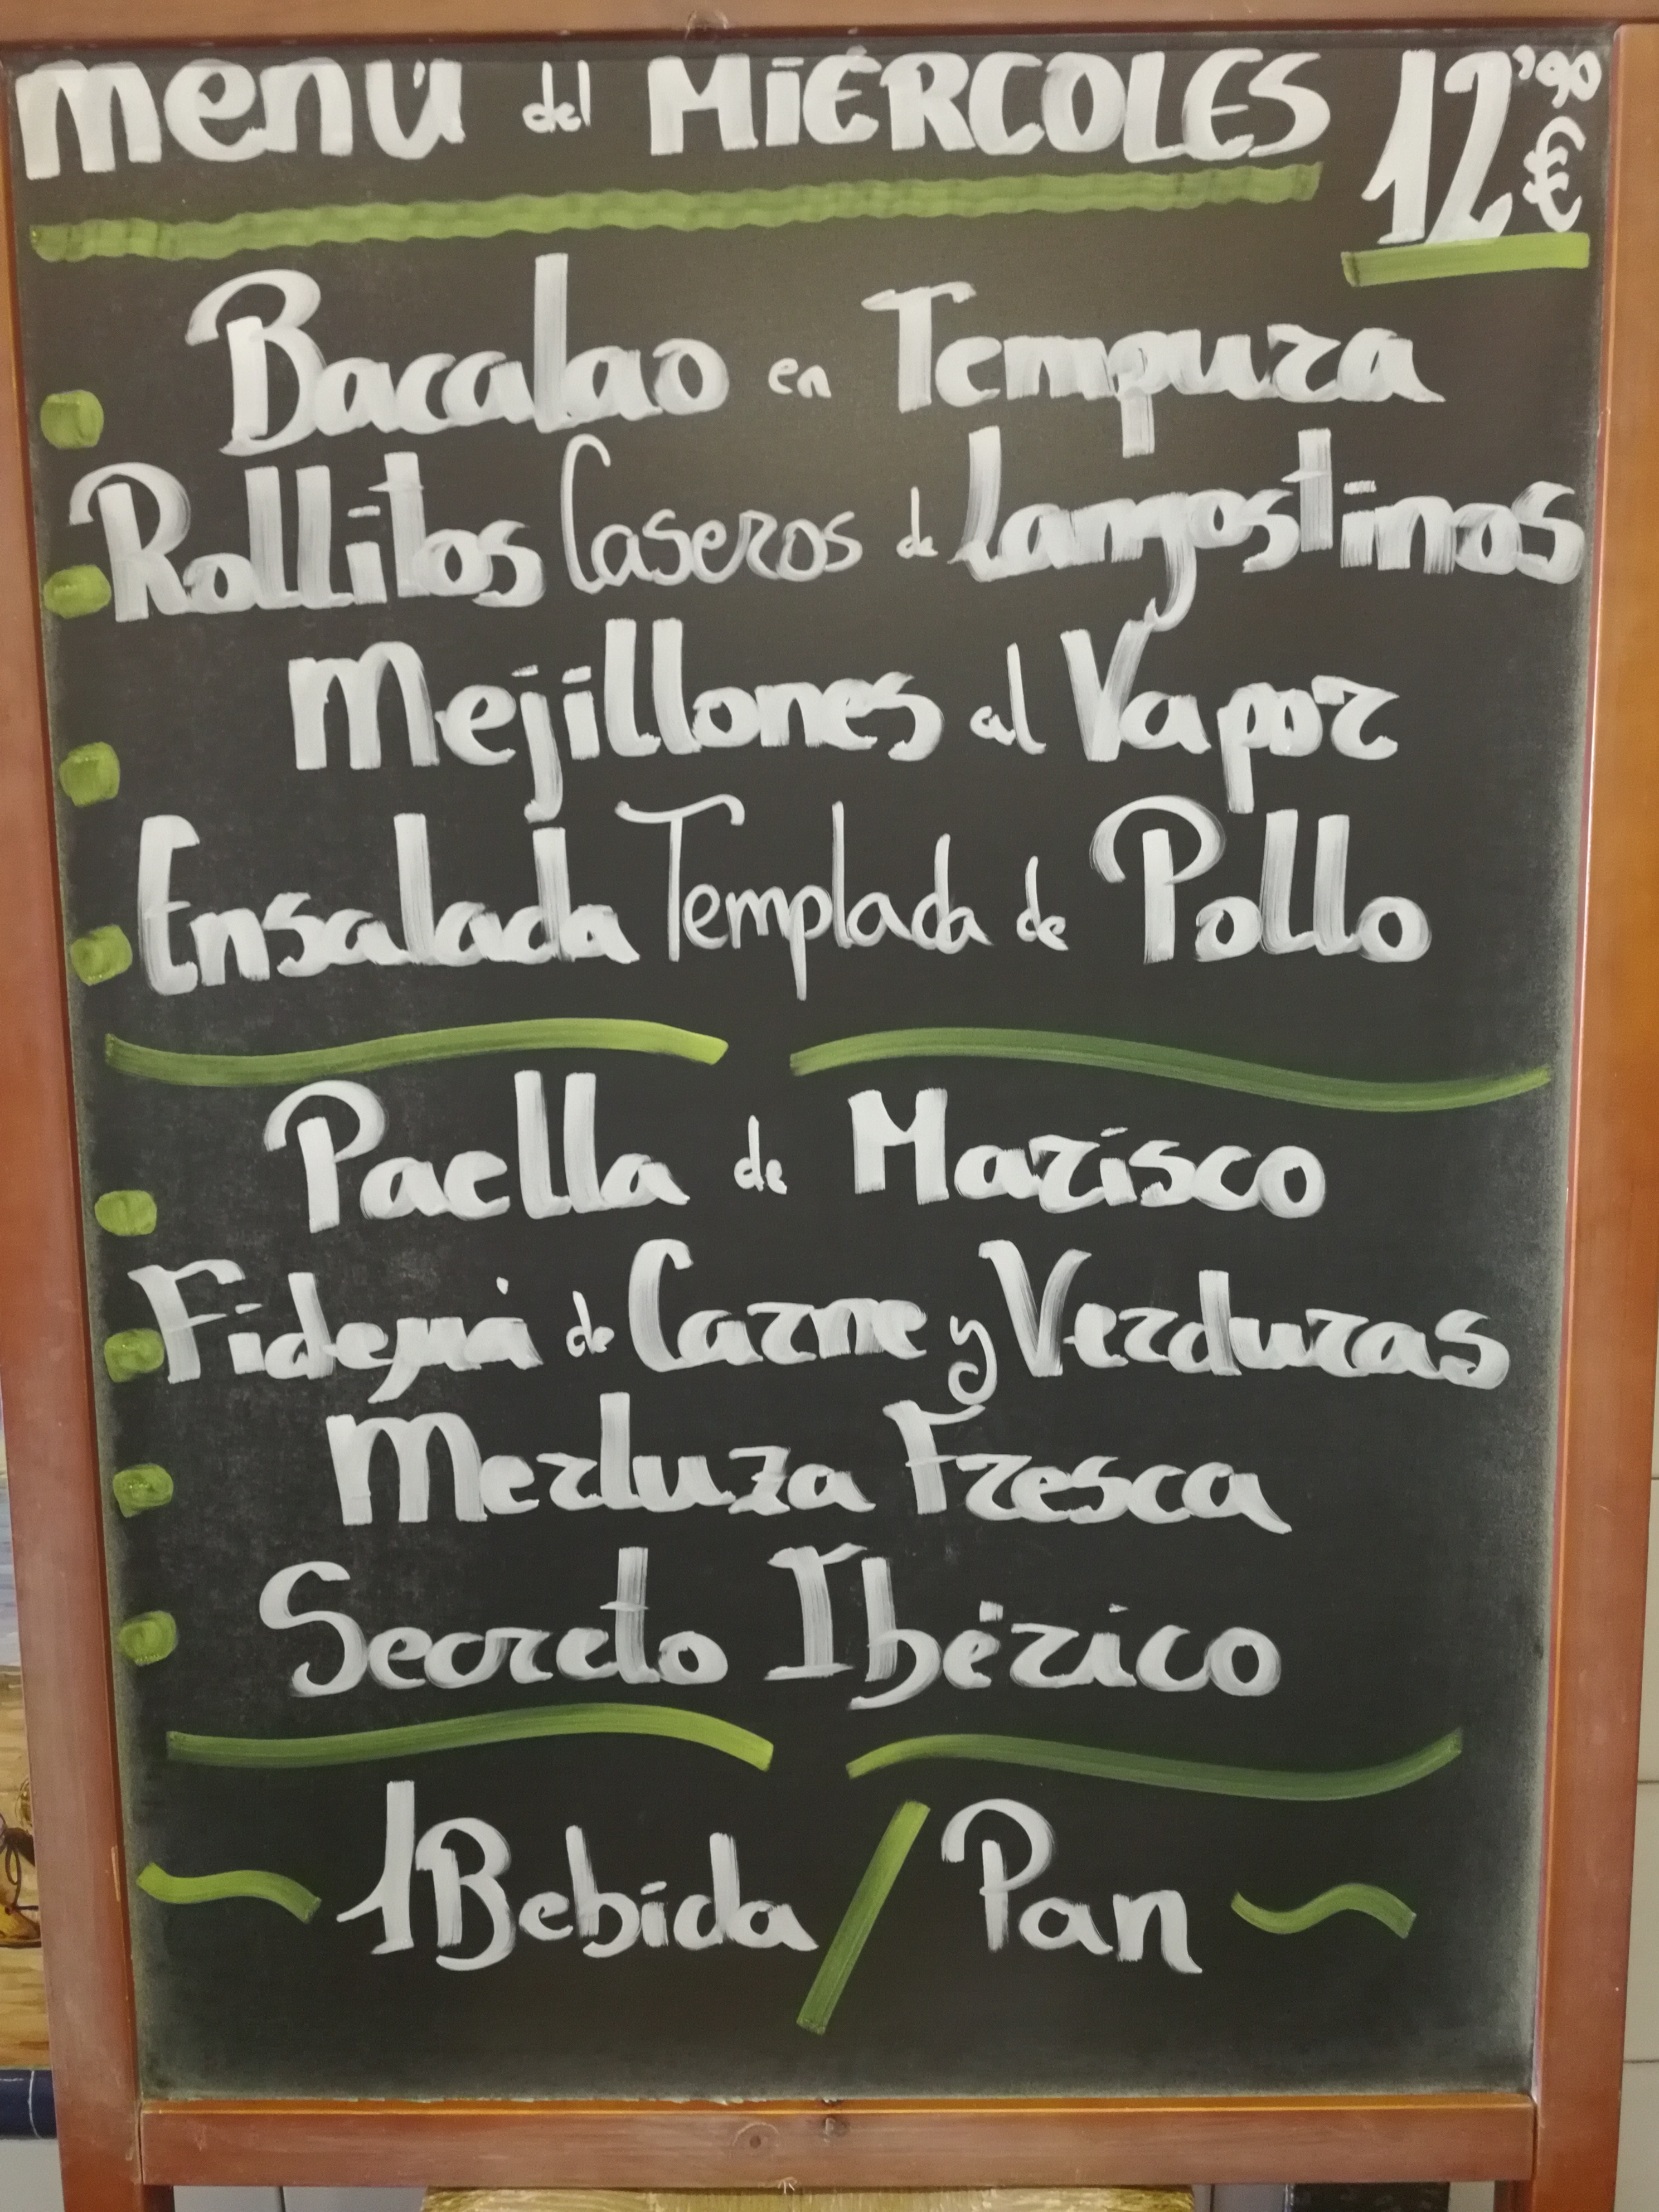 menú del MIÉRCOLES 12'90 €
Bacalao en Tempura
Rollitos Caseros de Langostinos
Mejillones al Vapor
Ensalada Templada de Pollo
Paella de Marisco
Fideguá de Carne y Verduras
Merluza Fresca
Secreto Ibérico
1 Bebida / Pan